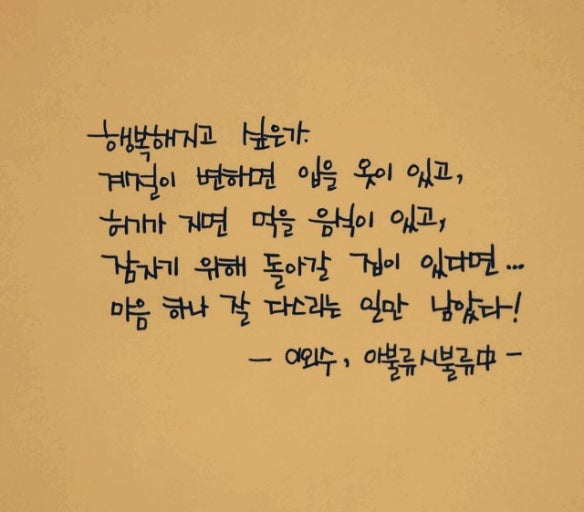 행복해지고 싶은가.
계절이 변하면 입을 옷이 있고,
허기가 지면 먹을 음식이 있고,
잠자기 위해 돌아갈 집이 있다면...
마음 하나 잘 다스리는 일만 남았다!
- 이외수, 아불류시불류中 -